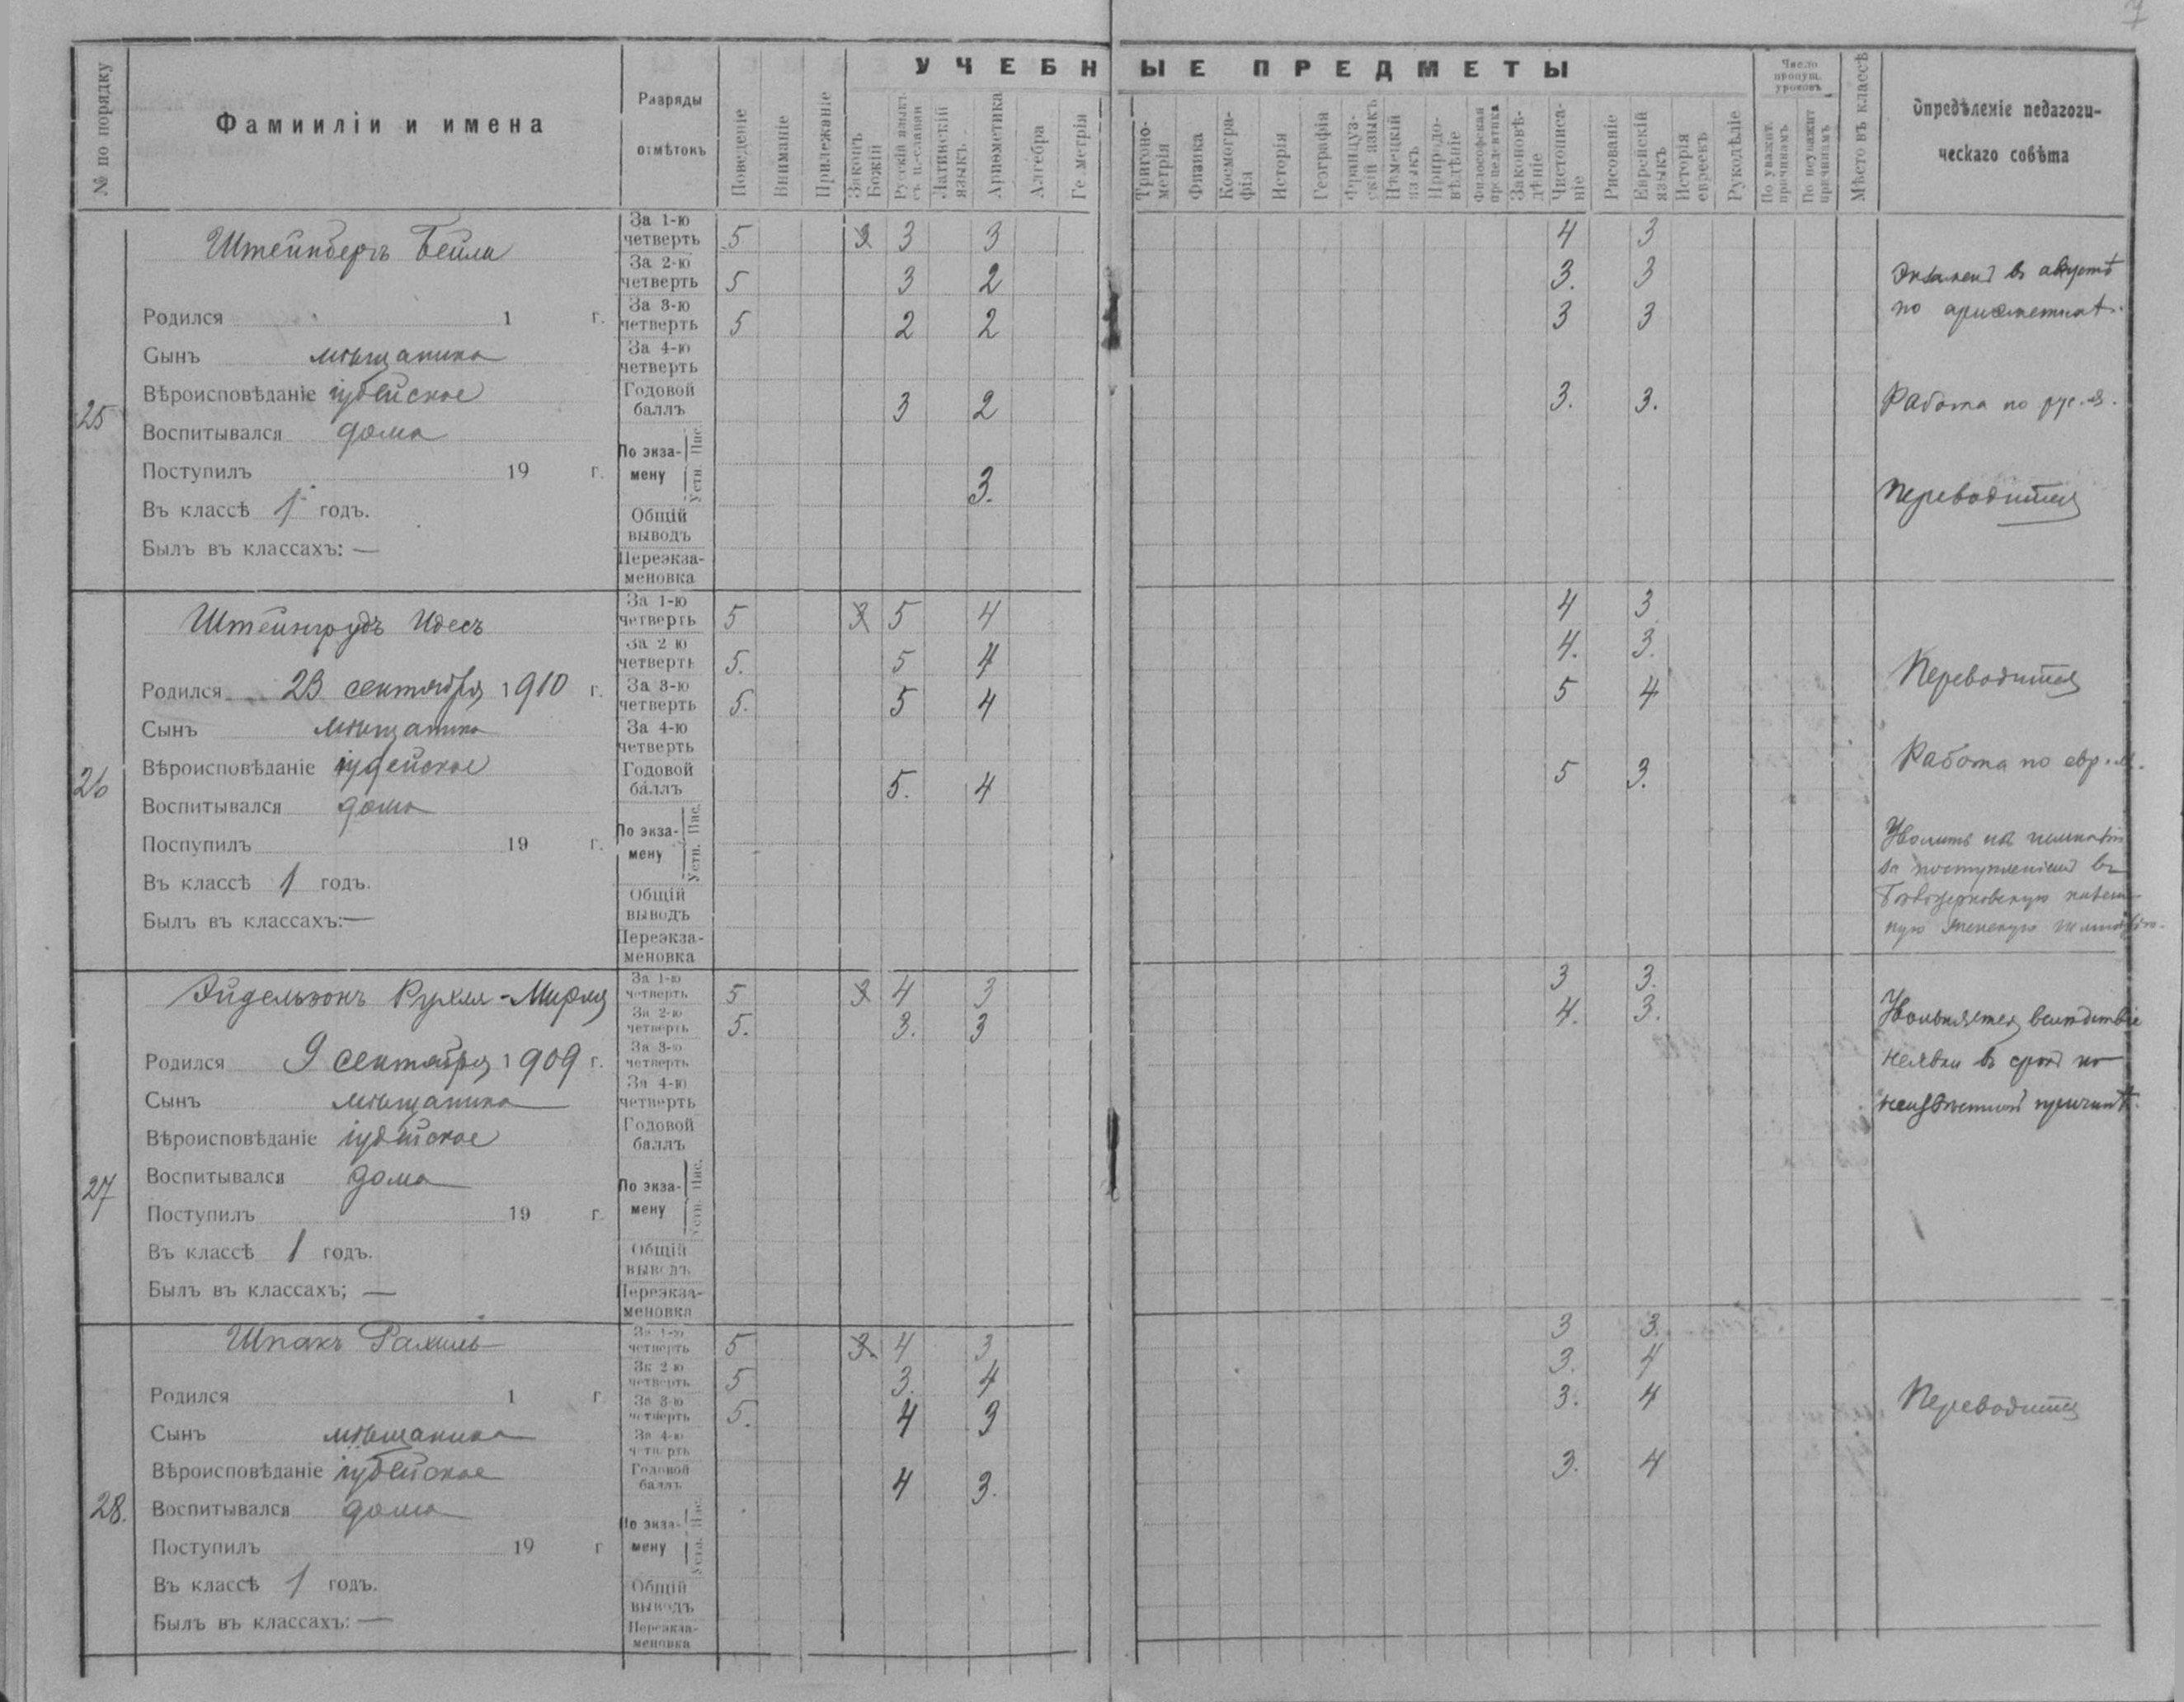 7
УЧЕБНЫЕ ПРЕДМЕТЫ
№ по порядку
Фамииліи и имена
Разряды отмѣтокъ
Поведеніе
Вниманіе
Прилежаніе
Законъ Божій
Русскій языкъ съ ц.-славян
Латинскій языкъ
Ариѳметика
Алгебра
Геметрія
Тригоно-метрія
Физика
Космогра-фія
Исторія
Географія
Француз-скій языкъ
Нѣмецкій языкъ
Природо-вѣдѣніе
Философская пропедевтика
Законовѣ-дѣніе
Чистописа-ніе
Рисованіе
Еврейскій языкъ
Исторія евреевъ
Рукодѣліе
Число пропущ. уроковъ
По уважит. причинамъ
По неуважит причинамъ
Мѣсто въ классѣ
Опредѣленіе педагоги-
ческаго совѣта
25
Штейнбергъ Бейла
Родился 1 г.
Сынъ мѣщанина
Вѣроисповѣданіе іудейское
Воспитывался дома
Поступилъ 19 г.
Въ классѣ 1 годъ.
Былъ въ классахъ: —
За 1-ю четверть 5 3 3 3 4 3
За 2-ю четверть 5 3 2 3. 3
За 3-ю четверть 5 2 2 3 3
За 4-ю четверть
Годовой баллъ 3 2 3. 3.
По экза-мену Пис. Устн. 3.
Общій выводъ
Переэкза-меновка
Экзаменъ въ августѣ
по ариѳметикѣ.
Работа по рус. яз.
Переводится
26
Штейнгрудъ Идесъ
Родился 23 сентября 1910 г.
Сынъ мѣщанина
Вѣроисповѣданіе іудейское
Воспитывался дома
Поспупилъ 19 г.
Въ классѣ 1 годъ.
Былъ въ классахъ: —
За 1-ю четверть 5 3 5 4 4 3
За 2 ю четверть 5. 5 4 4. 3.
За 3-ю четверть 5. 5 4 5 4
За 4-ю четверть
Годовой баллъ 5. 4 5 3.
По экза-мену Пис. Устн.
Общій выводъ
Переэкза-меновка
Переводится
Работа по евр. яз.
Уволить изъ гимназіи
за поступленіемъ въ
ную женскую гимназію.
27
Эйдельзонъ Рухля-Мирля
Родился 9 сентября 1909 г.
Сынъ мѣщанина
Вѣроисповѣданіе іудейское
Воспитывался дома
Поступилъ 19 г.
Въ классѣ 1 годъ.
Былъ въ классахъ; —
За 1-ю четверть 5 3 4 3 3 3.
За 2-ю четверть 5. 3. 3 4. 3.
За 3-ю четверть
За 4-ю четверть
Годовой баллъ
По экза-мену Пис. Устн.
Общій выводъ
Переэкза-меновка
Увольняется вслѣдствіе
неявки въ срокъ по
неизвѣстной причинѣ.
28.
Шпакъ Рахиль
Родился 1 г.
Сынъ мѣщанина
Вѣроисповѣданіе іудейское
Воспитывался дома
Поступилъ 19 г
Въ классѣ 1 годъ.
Былъ въ классахъ: —
За 1-ю четверть 5 3. 4 3 3 3.
За 2 ю четверть 5 3. 4 3. 4
За 3-ю четверть 5. 4 3 3. 4
За 4-ю четверть
Годовой баллъ 4 3. 3. 4
По экза-мену Пис. Устн.
Общій выводъ
Переэкза-меновка
Переводится